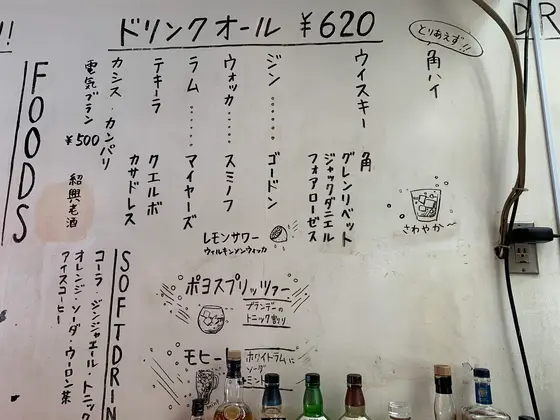 ドリンクオール ¥620
とりあえず!!
角ハイ
さわやか〜
ウイスキー 角
グレンリベット
ジャックダニエル
フォアローゼス
ジン…… ゴードン
ウォッカ…… スミノフ
ラム…… マイヤーズ
テキーラ クエルボ
カサドレス
カシス・カンパリ
電気ブラン ¥500
紹興老酒
レモンサワー
ウィルキンソンウォッカ
ポヨスプリッツァー
ブランデーの
トニック割り
モヒート
ホワイトラムに
ソーダ
ミント
SOFTDRIN
コーラ・ジンジャエール・トニック
オレンジ・ソーダ・ウーロン茶
アイスコーヒー
FOODS
!!
DR